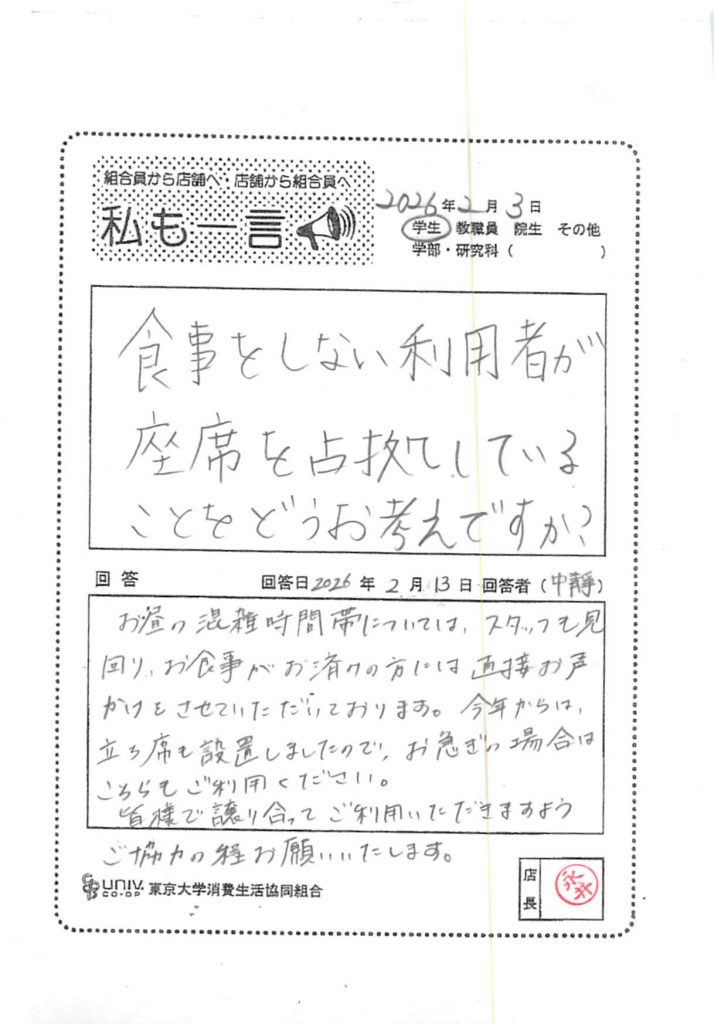 組合員から店舗へ・店舗から組合員へ
私も一言
2026年2月3日
学生 教職員 院生 その他
学部・研究科( )
食事をしない利用者が
座席を占拠している
ことをどうお考えですか?
回答 回答日2026年2月13日 回答者(中靜)
お昼の混雑時間帯については、スタッフも見
回り、お食事がお済みの方には直接お声
かけをさせていただいております。今年からは、
立ち席も設置しましたので、お急ぎの場合は
こちらもご利用ください。
皆様で譲り合ってご利用いただきますよう
ご協力の程お願いいたします。
univ. CO-OP 東京大学消費生活協同組合
店長 永井